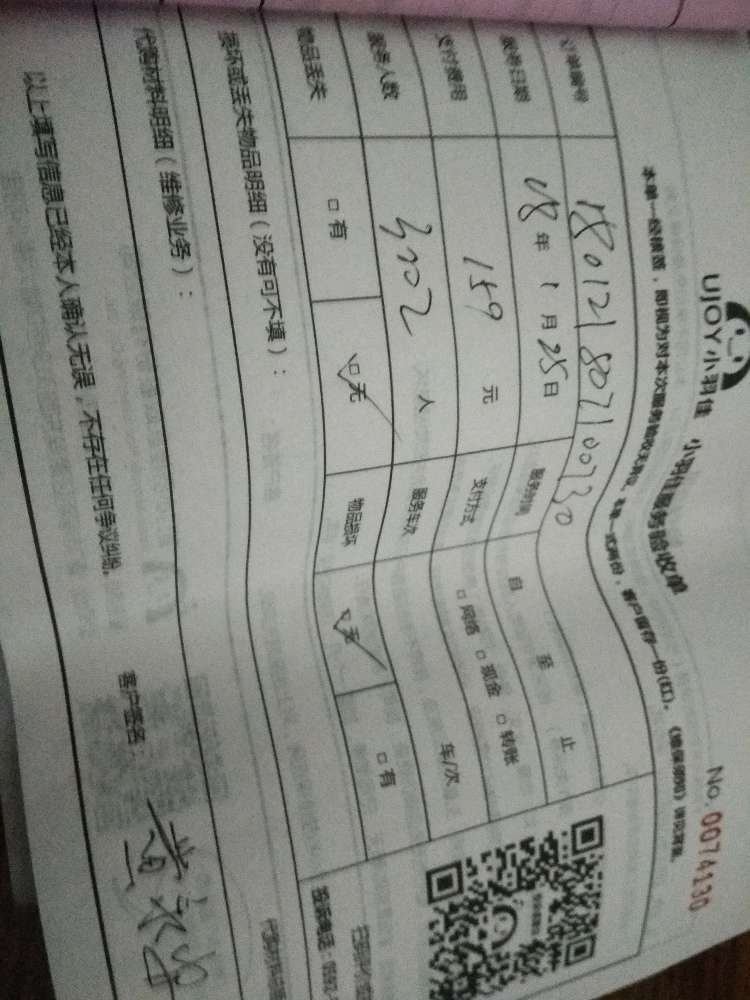 UJOY小羽佳 小羽佳服务验收单
No. 0074130
本单一经检签，即视为对本次服务验收无异议。本单一式两份，客户留存一份(红)。《维保须知》详见背面。
订单编号 180121802100730
服务日期 18 年 1 月 25 日 服务时间 自 至 止
支付费用 159 元 支付方式 □网络 □现金 □转账
服务人数 人 服务车次 车/次
物品丢失 □有 □无 物品损坏 □无 □有
损坏或丢失物品明细（没有可不填）：
代购材料明细（维修业务）：
以上填写信息已经本人确认无误，不存在任何争议纠纷。
客户签名：
投诉电话：